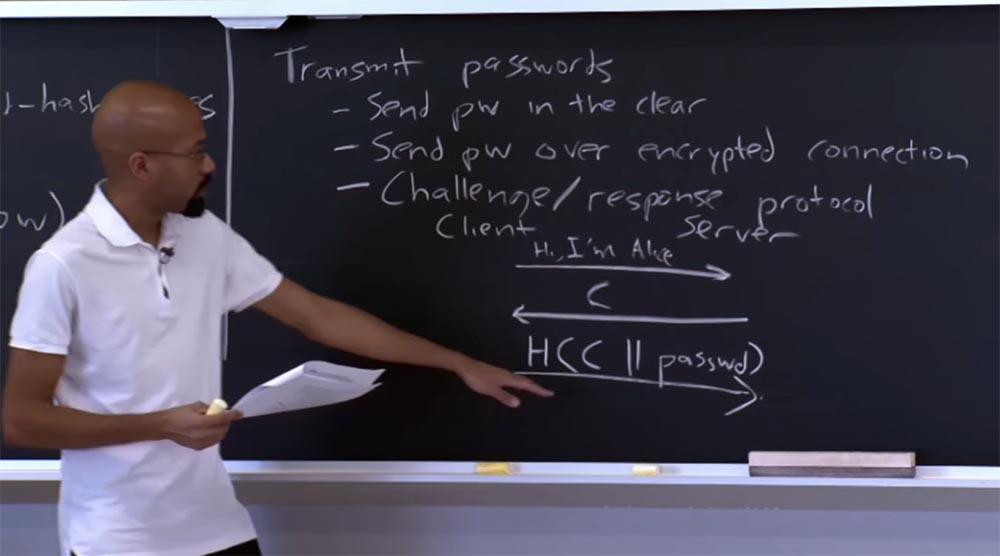 Transmit passwords
- Send pw in the clear
- Send pw over encrypted connection
- Challenge/response protocol
Client Server
Hi, I'm Alice
C
H(C || passwd)